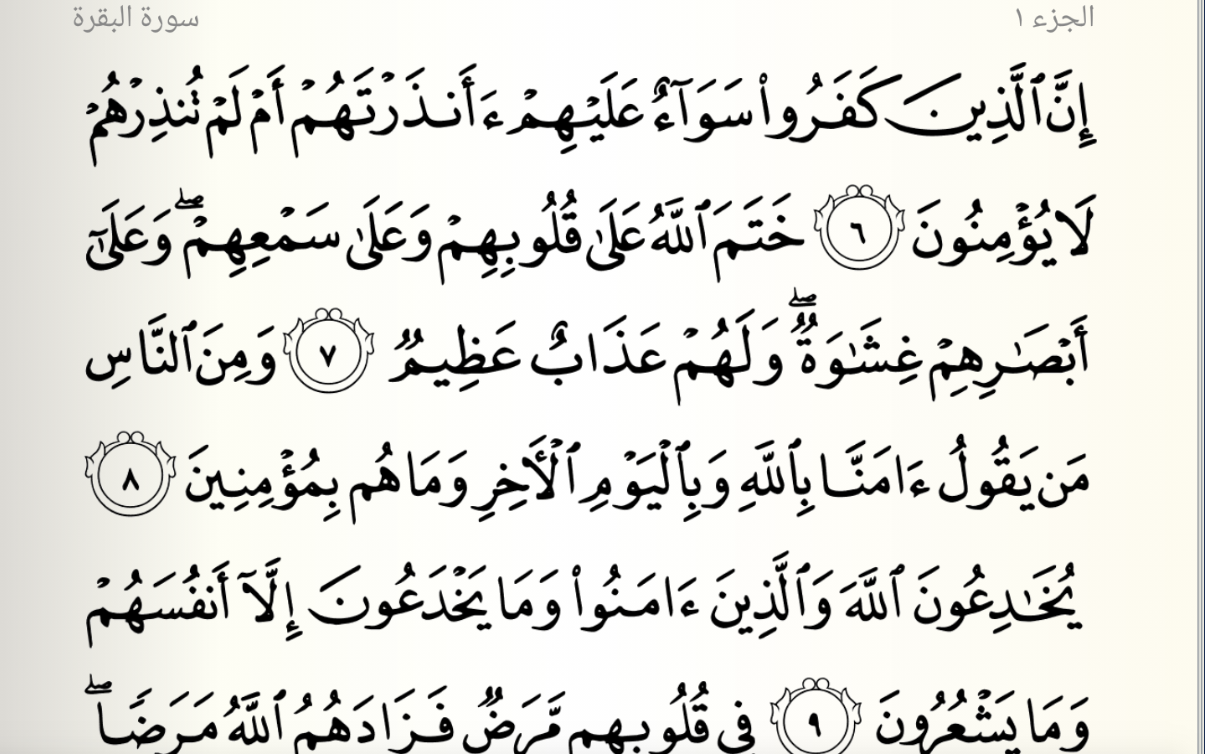 الجزء ١ سورة البقرة
إِنَّ ٱلَّذِينَ كَفَرُوا۟ سَوَآءٌ عَلَيْهِمْ ءَأَنذَرْتَهُمْ أَمْ لَمْ تُنذِرْهُمْ
لَا يُؤْمِنُونَ ٦ خَتَمَ ٱللَّهُ عَلَىٰ قُلُوبِهِمْ وَعَلَىٰ سَمْعِهِمْۖ وَعَلَىٰٓ
أَبْصَـٰرِهِمْ غِشَـٰوَةٌۖ وَلَهُمْ عَذَابٌ عَظِيمٌ ٧ وَمِنَ ٱلنَّاسِ
مَن يَقُولُ ءَامَنَّا بِٱللَّهِ وَبِٱلْيَوْمِ ٱلْأَخِرِ وَمَا هُم بِمُؤْمِنِينَ ٨
يُخَـٰدِعُونَ ٱللَّهَ وَٱلَّذِينَ ءَامَنُوا۟ وَمَا يَخْدَعُونَ إِلَّآ أَنفُسَهُمْ
وَمَا يَشْعُرُونَ ٩ فِى قُلُوبِهِم مَّرَضٌ فَزَادَهُمُ ٱللَّهُ مَرَضًاۖ